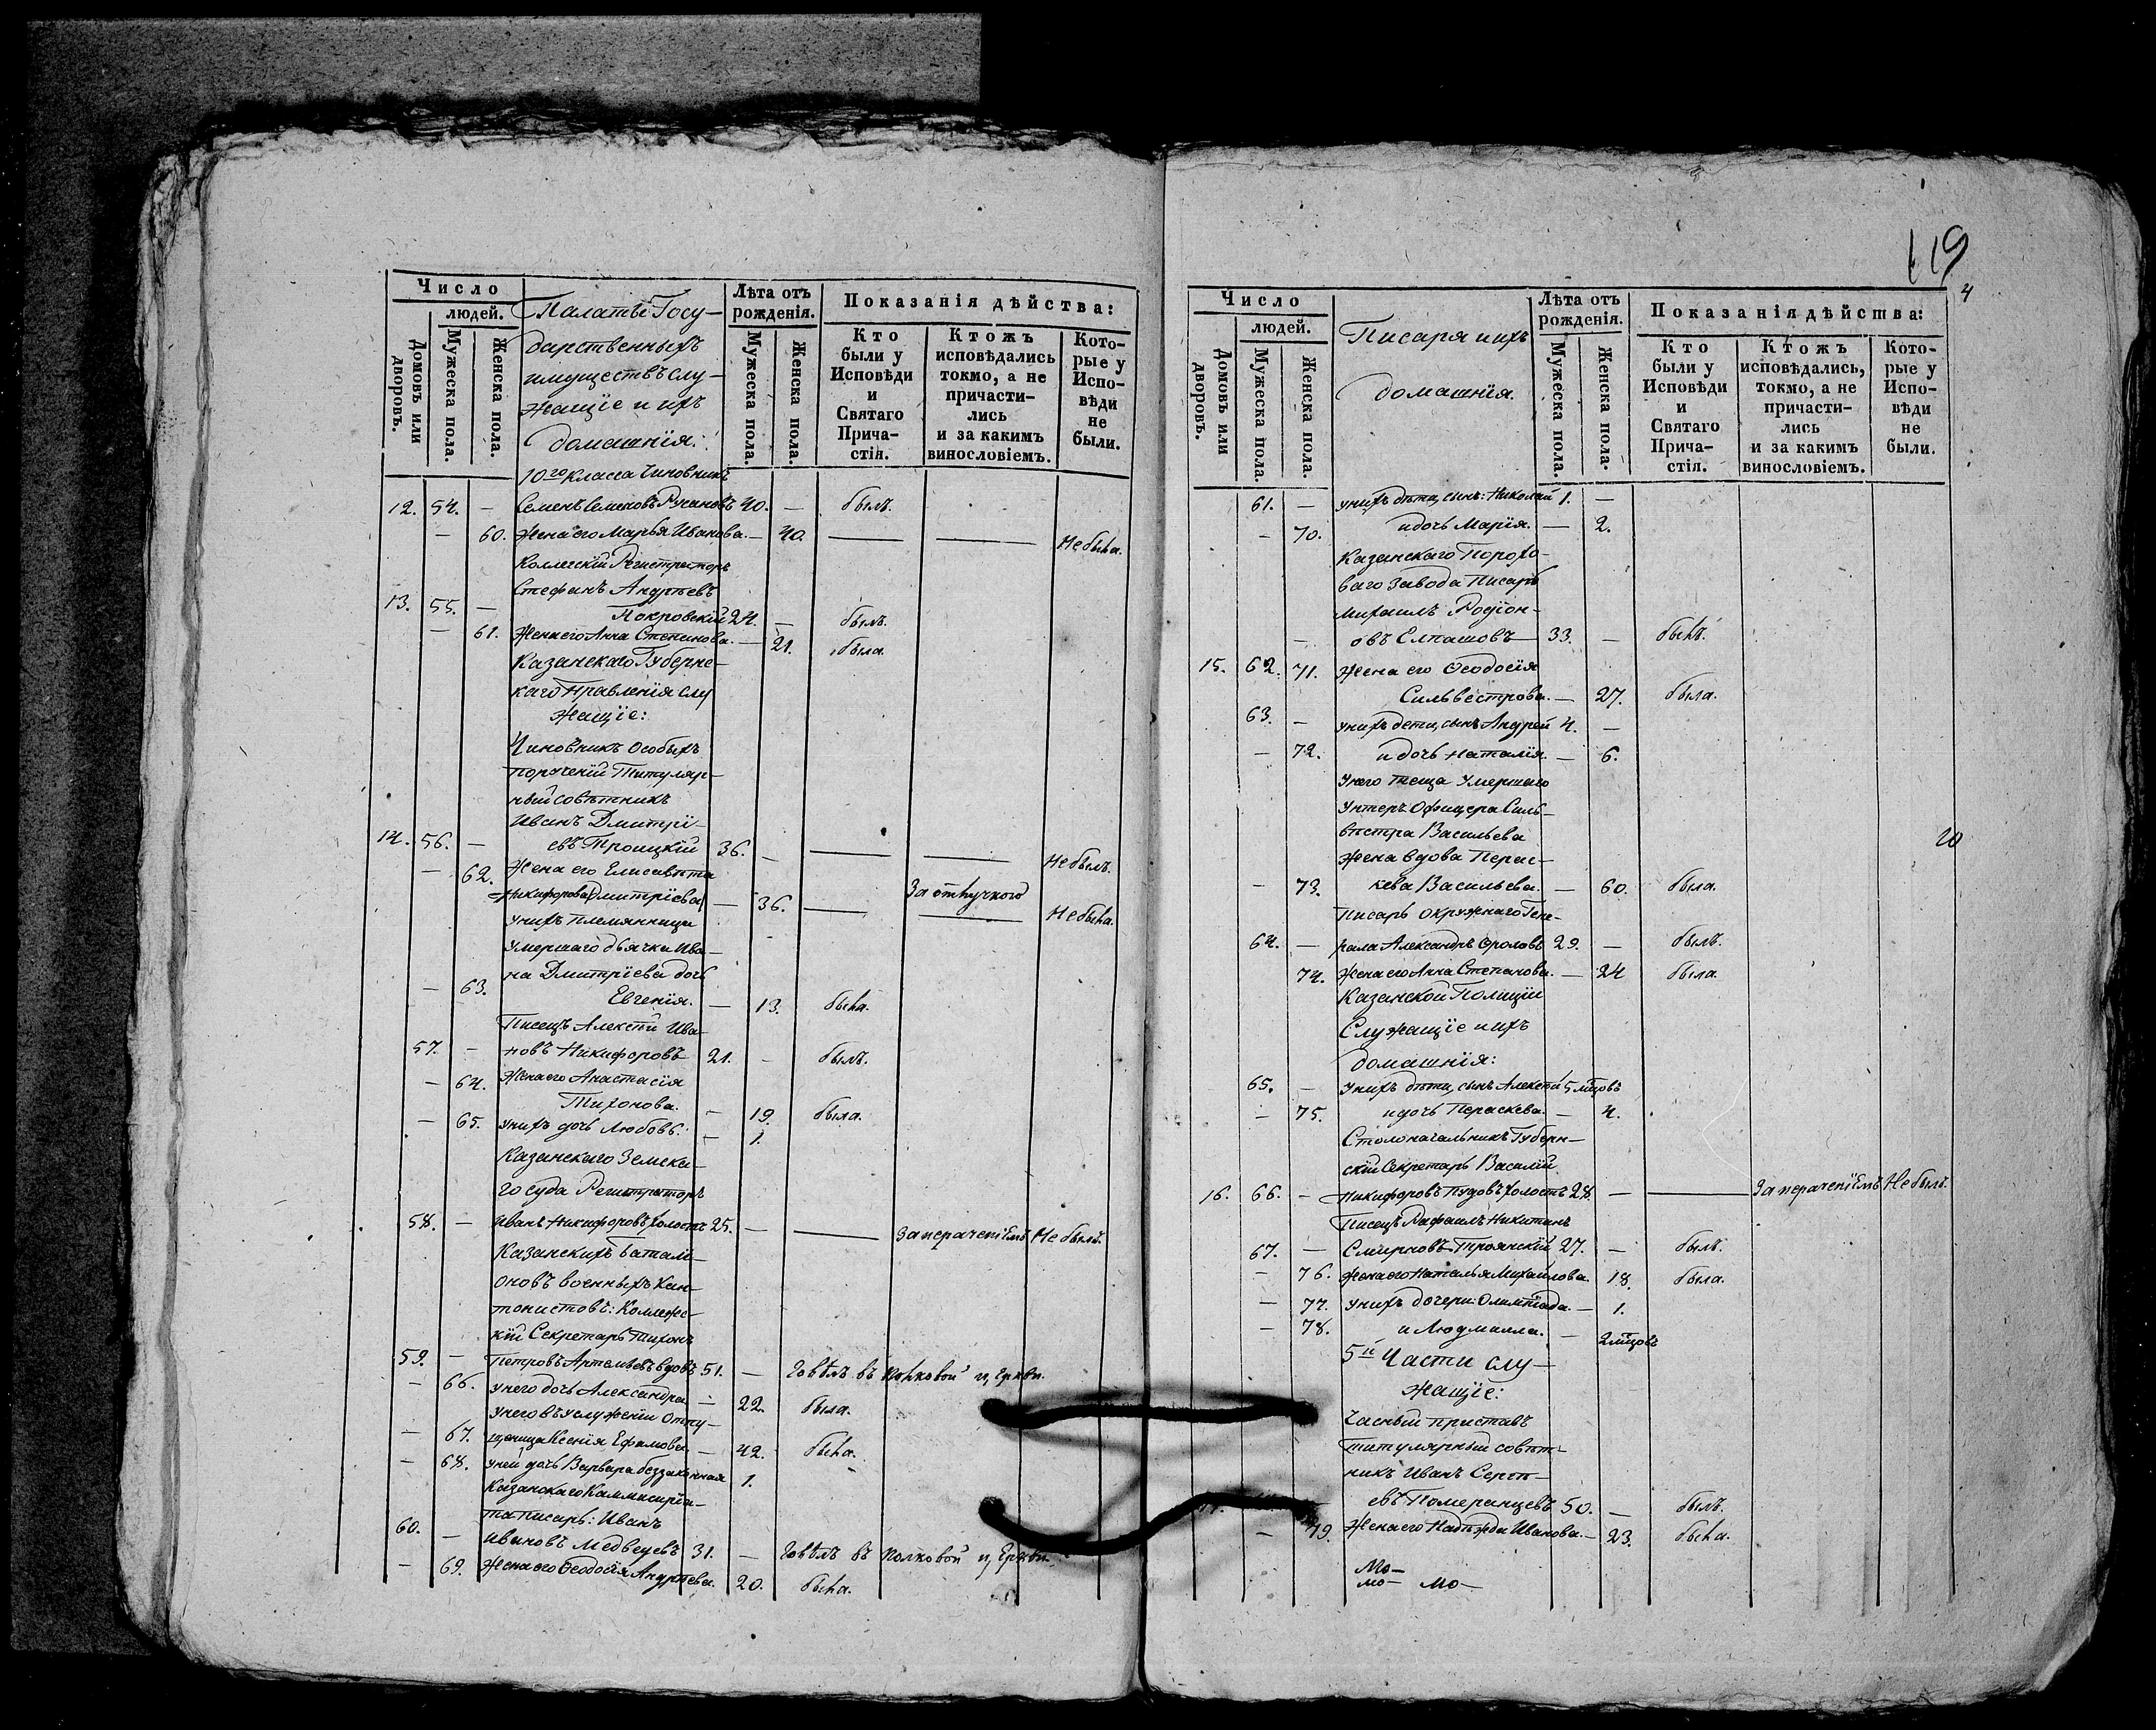 Число
людей.
Домовъ или дворовъ.
Мужеска пола.
Женска пола.
Палаты Госу-
дарственныхъ
имуществъ слу-
жащіе и ихъ
домашнія:
Лѣта отъ
рожденія.
Мужеска пола.
Женска пола.
Показанія дѣйства:
Кто
были у
Исповѣди
и
Святаго
Прича-
стія.
Ктожъ
исповѣдались
токмо, а не
причасти-
лись
и за какимъ
винословіемъ.
Кото-
рые у
Испо-
вѣди
не
были.
10го класса Чиновникъ
12. 54. — Семенъ Семеновъ 40. — былъ.
— 60. Жена его Марья Иванова. — 40. — — Не была.
Коллегскій Регистраторъ
Стефанъ Андреевъ
13. 55. — Покровскій 24. — былъ.
— 61. Жена его Анна Степанова. — 21. была.
Казанскаго Губернс-
каго Правленія слу
жащіе:
Чиновникъ особыхъ
порученій Титуляр-
ный совѣтникъ
Иванъ Дмитрі-
14. 56. — евъ Троицкій 36. — — — Не былъ.
— 62. Жена его Елисавѣта
Никифорова (Дмитріева) — 36. — За отлучкою Не была.
У нихъ племянница
умершаго дьячка Ива-
на Дмитріева дочь
— 63. Евгенія. — 13. была.
Писецъ Алексѣй Ива-
57. — новъ Никифоровъ 21. — былъ.
— 64. Жена его Анастасія
Тихонова. — 19. была.
— 65. У нихъ дочь Любовь. — 1.
Казанскаго Земска-
го суда Регистраторъ
58. — Иванъ Никифоровъ холостъ 25. — — За нераченіемъ Не былъ.
Казанскихъ Баталі-
оновъ военныхъ Кан-
тонистовъ: Коллежс-
кій Секретарь Тихонъ
59. — Петровъ Артемьевъ вдовъ 51. — Говѣлъ въ полковой церкви.
— 66. У него дочь Александра — 22. была.
У него въ услуженіи отпу-
— 67. щеница Ксенія Ефимова — 42. была.
— 68. У ней дочь Варвара беззаконная 1.
Казанскаго Коммисарія-
та писарь: Иванъ
60. — Ивановъ Медведевъ 31. — Говѣлъ въ полковой церкви.
— 69. Жена его Ѳеодосія Андреева. 20. была.
119
4
Число
людей.
Домовъ или дворовъ.
Мужеска пола.
Женска пола.
Писаря и ихъ
домашнія.
Лѣта отъ
рожденія.
Мужеска пола.
Женска пола.
Показанія дѣйства:
Кто
были у
Исповѣди
и
Святаго
Прича-
стія.
Ктожъ
исповѣдались,
токмо, а не
причасти-
лись
и за какимъ
винословіемъ.
Кото-
рые у
Испо-
вѣди
не
были.
61. — У нихъ дѣти, сынъ: Николай 1. —
— 70. и дочь Марія. — 2.
Казанскаго Порохо-
ваго Завода Писарь
Михаилъ Родіон-
— овъ 33. — былъ.
15. 62. 71. Жена его Ѳеодосія
Сильвестрова. — 27. была.
63. — У нихъ дети, сынъ Андрей 4. —
— 72. и дочь Наталія. — 6.
У него теща умершаго
Унтеръ Офицера Силь-
вестра Васильева
Жена вдова Парас-
— 73. кева Васильева. — 60. была.
Писарь окружнаго Гене-
64. — рала Александръ Фроловъ 29. — былъ.
74. Жена его Анна Степанова. — 24 была.
Казанской Полиціи
Служащіе и ихъ
домашнія:
65. — У нихъ дѣти, сынъ Алексѣй 5 мѣцовъ
— 75. и дочь Параскева. — 4.
Столоначальникъ Губерн-
скій Секретарь Василій
16. 66. — Никифоровъ Пудовъ холостъ 28. — — За нераченіемъ Не былъ.
Писецъ Рафаилъ Никитинъ
67. — Смирновъ Троянскій 27. — былъ.
— 76. Жена его Наталья Михайлова. 18. была.
— 77. У нихъ дочери: Олимпіада. — 1.
— 78. и Людмилла. — 2 мѣцовъ
5й Части слу-
жащіе:
Часный приставъ
титулярный совѣт-
никъ Иванъ Сергѣ-
евъ Померанцевъ 50. — былъ.
— 79. Жена его Надѣжда Иванова. — 23. была.
Мо-
мо- Мо-
20